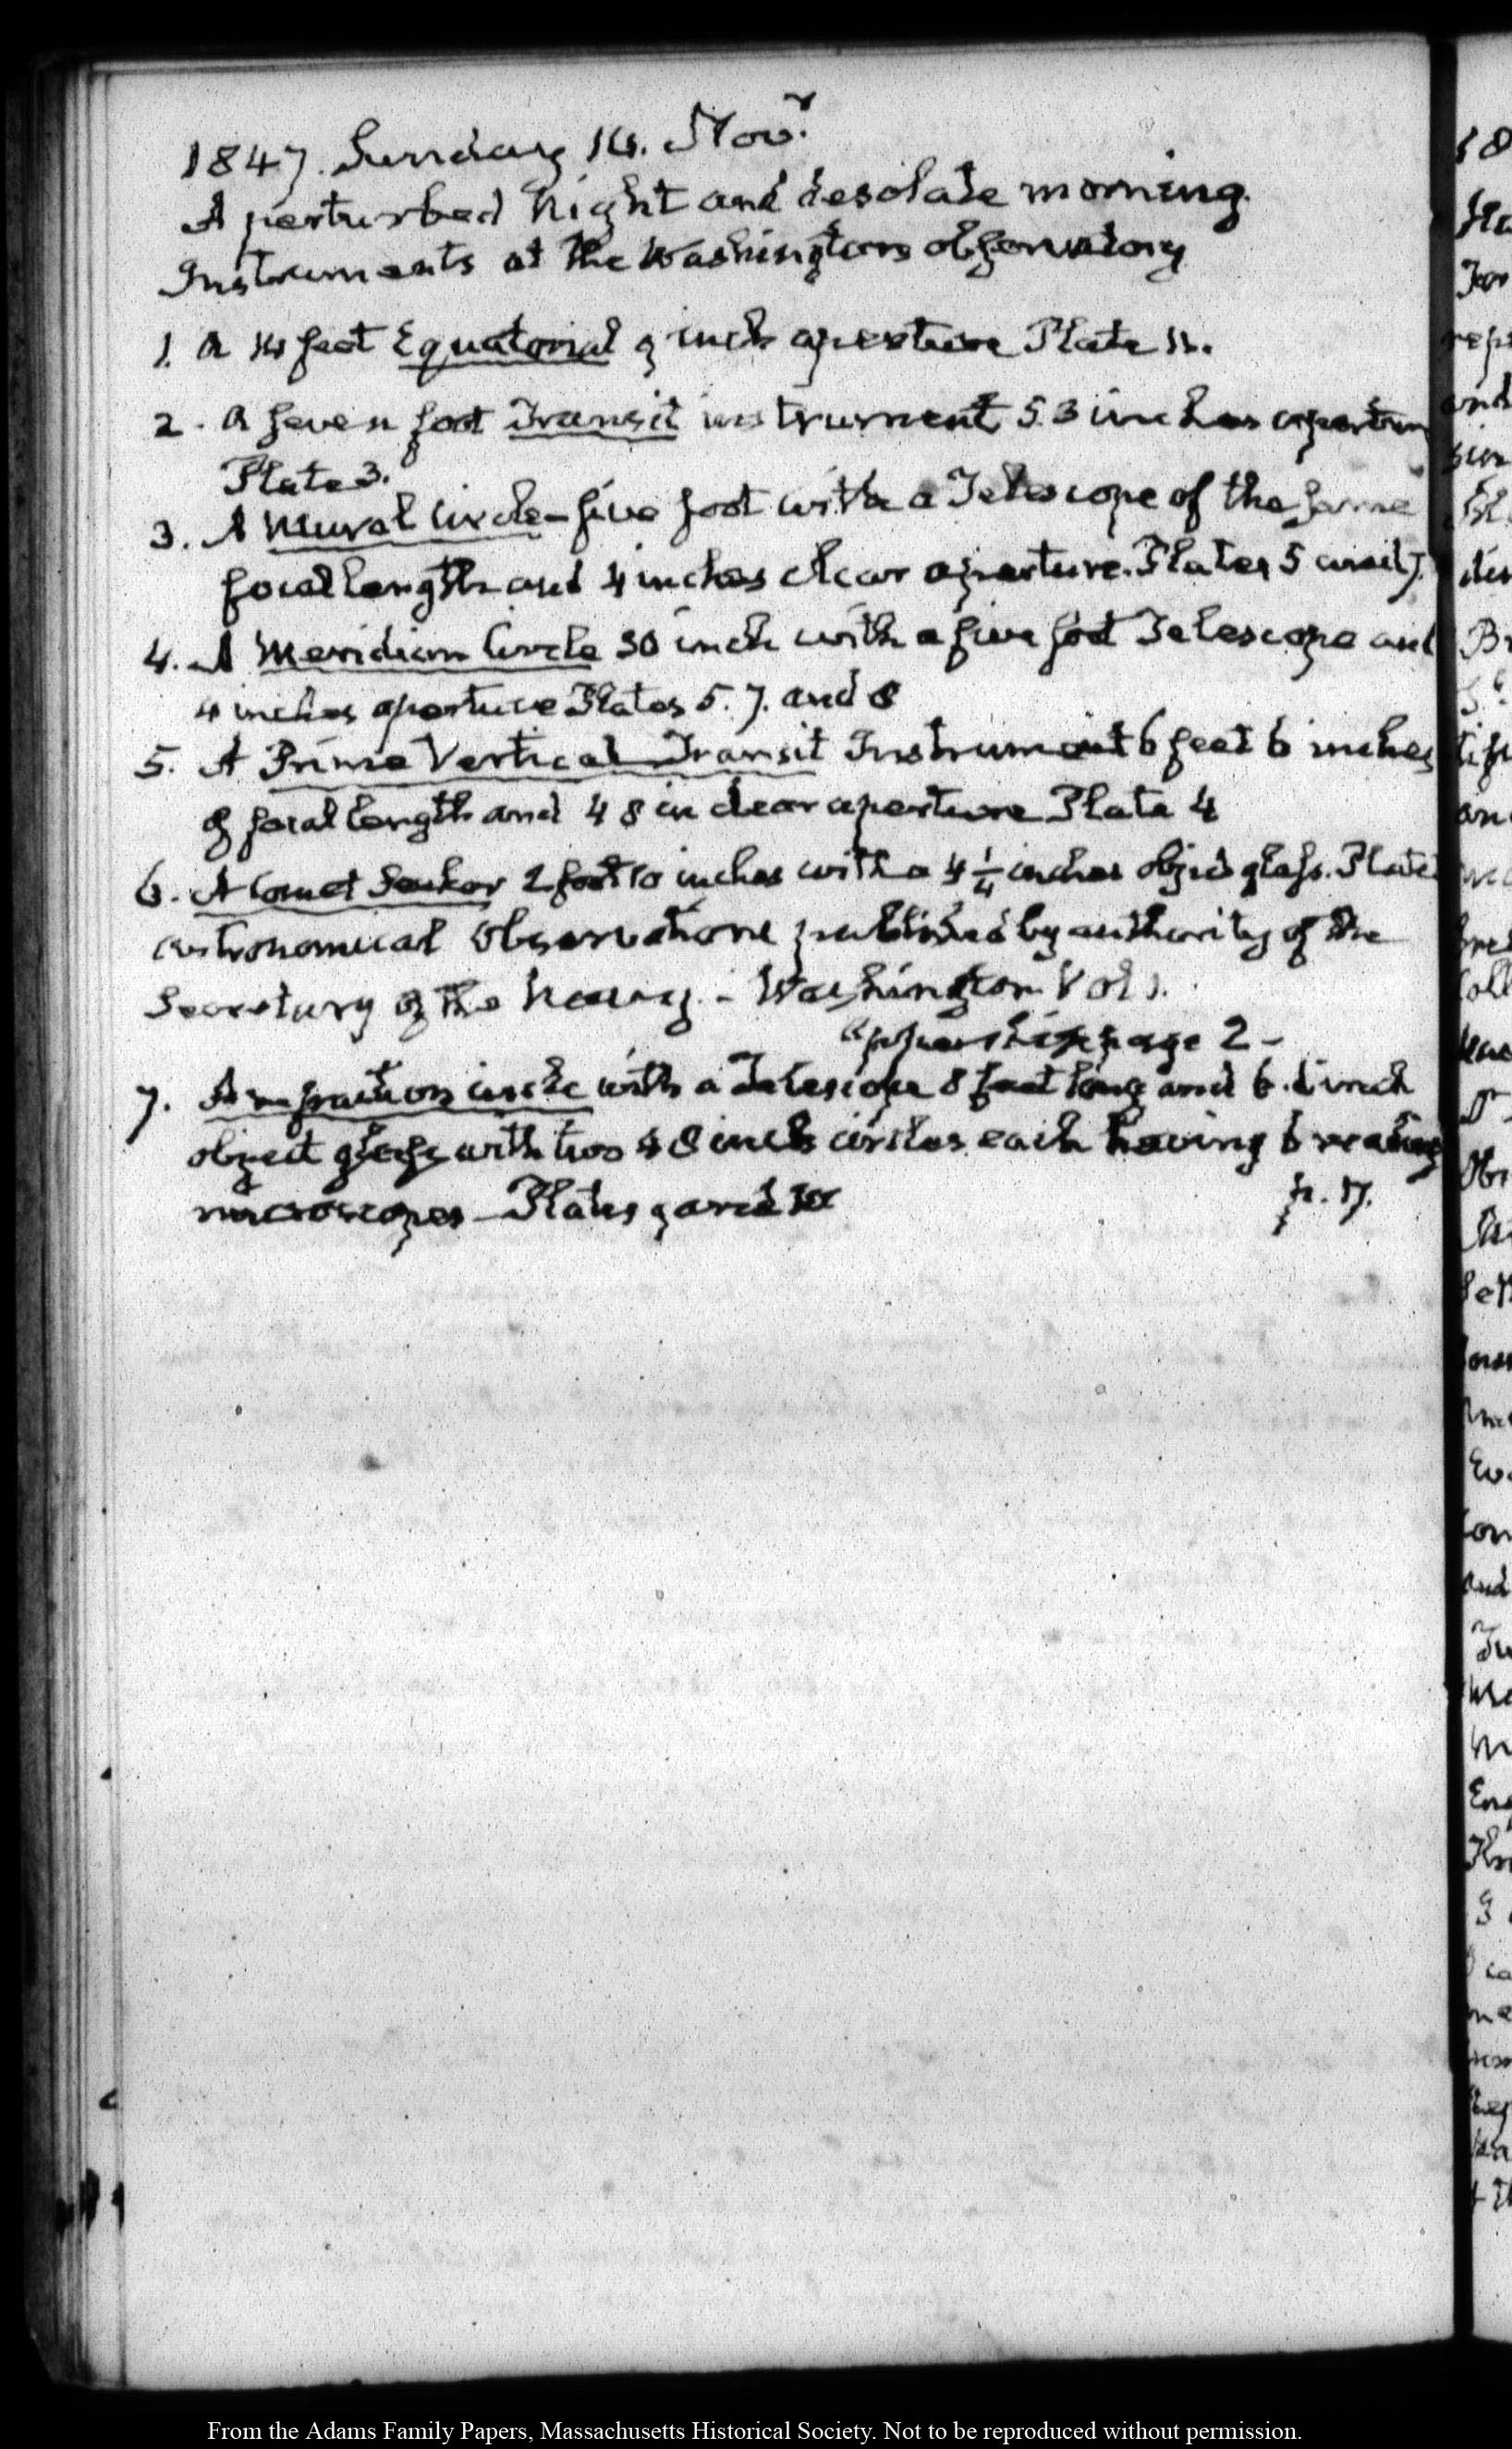 1847. Sunday 14. Novr.
A perturbed night and desolate morning.
Instruments at the Washington observatory
1. A 14 feet Equatorial 9 inch aperture Plate 11.
2. A seven foot Transit instrument 5.3 inches aperture
Plate 3.
3. A Mural Circle–five foot with a Telescope of the same
focal length and 4 inches clear aperture. Plates 5 and 7.
4. A Meridian Circle 30 inch with a five foot Telescope and
4 inches aperture Plates 5. 7. and 8
5. A Prime Vertical Transit Instrument 6 feet 6 inches
of focal length and 4 8 in clear aperture Plate 4
6. A Comet Seeker 2 foot 10 inches with a 4 1/4 inches object glass. Plate
astronomical Observations published by authority of the
Secretary of the Navy. – Washington Vol 1.
page 2 –
7. A refraction circle with a Telescope 8 feet long and 6. inch
object glass with two 4 8 inch circles each having 6 reading
microscopes – Plates 9 and 10 p. 17.
From the Adams Family Papers, Massachusetts Historical Society. Not to be reproduced without permission.